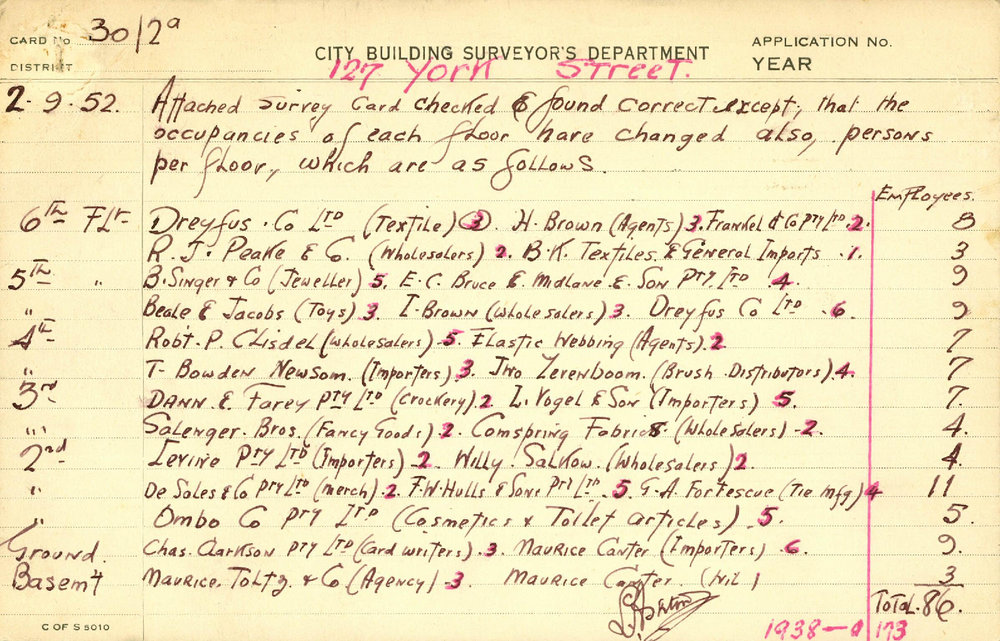 CARD No 30/2a
CITY BUILDING SURVEYOR'S DEPARTMENT
APPLICATION No.
DISTRICT
127 York Street.
YEAR
2.9.52. Attached Survey Card checked & found correct except, that the
occupancies of each floor have changed also, persons
per floor, which are as follows.
Employees.
6th Flr Dreyfus. Co Ltd (Textile) 3. H. Brown (Agents) 3. Frankel & Co Pty Ltd 2. 8
R. J. Peake & Co. (Wholesalers) 2. B.K. Textiles. & General Imports .1. 3
5th " B. Singer & Co (Jeweller) 5. E. C. Bruce & Midlane & Son Pty Ltd 4. 9
" Beale & Jacobs (Toys) 3. I. Brown (Wholesalers) 3. Dreyfus Co Ltd .6. 9
4th Robt. P. Clisdel (Wholesalers) 5. Elastic Webbing (Agents). 2 7
" T. Bowden Newsom. (Importers) 3. Jno Zerenboom. (Brush Distributors). 4. 7
3rd Dann & Farey Pty Ltd (Crockery) 2. L. Vogel & Son (Importers) 5. 7
" Salenger. Bros. (Fancy Goods) 2. Comspring Fabrics (Wholesalers) 2. 4.
2nd Levine Pty Ltd (Importers) 2. Willy. Salkow. (Wholesalers) 2. 4.
" De Soles & Co Pty Ltd (Merch) .2. F.W. Hulls & Sons Pty Ltd. 5. G.A. Fortescue (Tie Mfg) 4 11
" Ombo Co Pty Ltd (Cosmetics & Toilet articles). 5. 5.
Ground. Chas. Clarkson Pty Ltd (Card writers) .3. Maurice Canter (Importers) .6. 9.
Basemt Maurice. Toltz. & Co (Agency) 3 Maurice Canter (Nil) 3
Total. 86.
C OF S 5010
1938-9 173